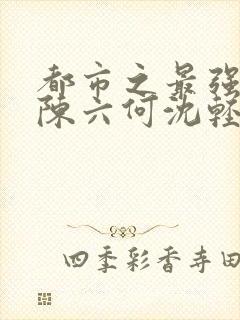 都市之最强
陈六何沈轻
四季彩香寺田